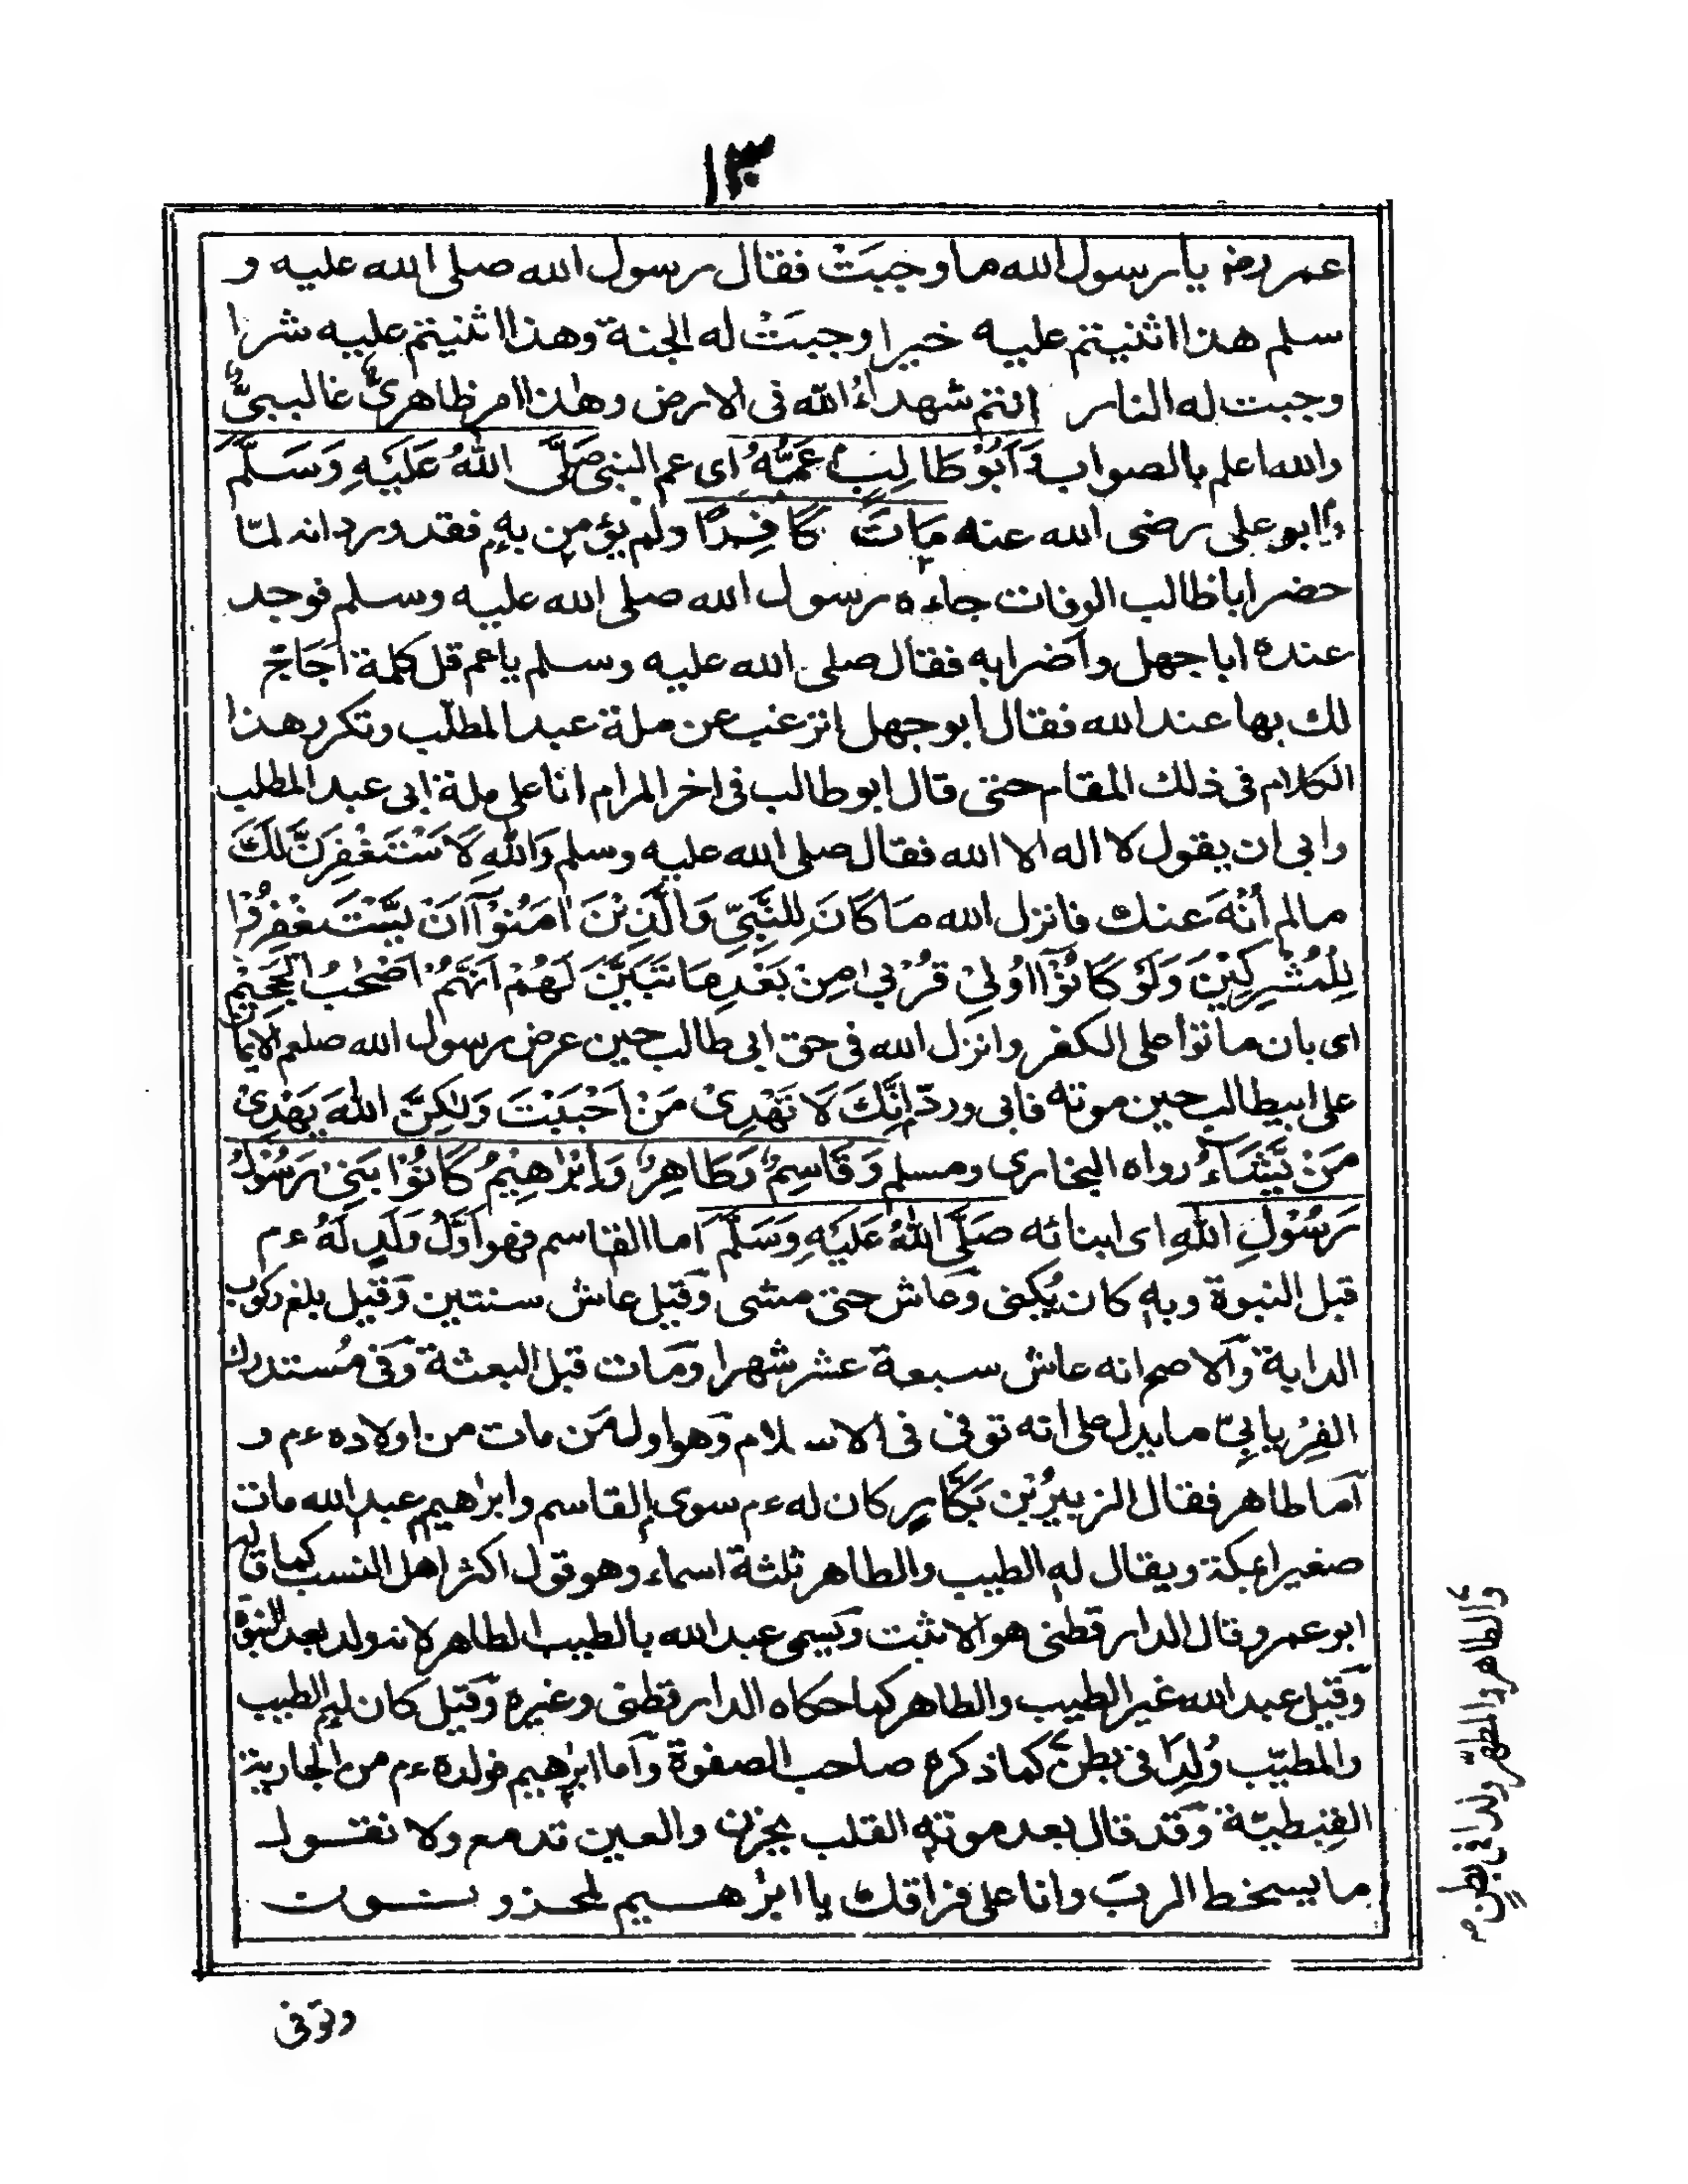 ١٣٠
عمر رضـ يا رسول الله ما وجبَتْ فقال رسول الله صلى الله عليه و
سلم هذا اثنيتم عليه خيرا وجبَتْ له الجنة وهذا اثنيتم عليه شرا
وجبت له النار انتم شهداءُ الله فى الارض وهٰذا امر ظاهرىٌّ غالبىٌّ
والله اعلم بالصواب وَاَبُوْ طَالِبٍ عَمُّهٗ اى عم النبى صَلَّى اللهُ عَلَيْهِ وَسَلَّمَ
وابو على رضى الله عنه مَاتَ كَافِرًا ولم يؤمن به فقد ورد انه لمّا
حضر ابا طالب الوفات جاءه رسول الله صلى الله عليه وسلم فوجد
عنده ابا جهل واَضرابه فقال صلى الله عليه وسلم يا عم قل كلمة اُحَاجّ
لك بها عند الله فقال ابو جهل اترغب عن ملة عبد المطلّب وتكرر هذا
الكلام فى ذلك المقام حتى قال ابو طالب فى اخر المرام انا على ملة ابى عبد المطلب
وابى ان يقول لا اله الا الله فقال صلى الله عليه وسلم وَاللهِ لَاَسْتَغْفِرَنَّ لَكَ
مالم اُنْهَ عنك فانزل الله مَا كَانَ لِلنَّبِىِّ وَالَّذِيْنَ اٰمَنُوْآ اَنْ يَّسْتَغْفِرُوْا
لِلْمُشْرِكِيْنَ وَلَوْ كَانُوْٓا اُولِىْ قُرْبٰى مِنْ بَعْدِ مَا تَبَيَّنَ لَهُمْ اَنَّهُمْ اَصْحٰبُ الْجَحِيْمِ
اى بان ماتوا على الكفر وانزل الله فى حق ابى طالب حين عرض رسول الله صلعم الايمان
على ابيطالب حين موته فابى وردّ اِنَّكَ لَا تَهْدِىْ مَنْ اَحْبَبْتَ وَلٰكِنَّ اللهَ يَهْدِىْ
مَنْ يَّشَآءُ رواه البخارى ومسلم وَقَاسِمٌ وَطَاهِرٌ وَاِبْرَاهِيْمُ كَانُوْا بَنِىْ رَسُوْلِ
رَسُوْلِ اللهِ اى ابنائه صَلَّى اللهُ عَلَيْهِ وَسَلَّمَ اَما القاسم فهو اَوَّلُ وَلَدٍ لَهُ ءم
قبل النبوة وبه كان يُكنى وَعاش حتى مشى وَقيل عاش سنتين وَقيل بلغ ركوب
الدابة وَالاصح انه عاش سبعة عشر شهرا وَمات قبل البعثة وَفى مُستدرك
الفِرْيابىّ ما يدل على انه توفى فى الاسلام وَهو اول مَن مات من اولاده ءم و
اَما طاهر فقال الزبيرُ بْن بَكَّارٍ كان له ءم سوى القاسم وابراهيم عبد الله مات
صغيرا بمكة ويقال له الطيب والطاهر ثلثة اسماء وهو قول اكثر اهل النسب كما قاله
ابو عمر وقال الدارقطنى هو الاثبت وَيسمى عبد الله بالطيب الطاهر لانه ولد بعد النبوة
وَقيل عبد الله غير الطيب والطاهر كما حكاه الدارقطنى وغيره وَقيل كان له الطيب
والمطيّب وُلِدَا فى بطن كما ذكره صاحب الصفوة وَاَما ابرٰهيم فولده ءم من الجارية
القِبطيّة وَقد قال بعد موته القلب يحزن والعين تدمع ولا نقول
ما يسخط الرب وانا على فراقك يا ابرٰهيم لمحزونون
والطاهر والمطهّر ولدا فى بطنٍ م
وتوفى